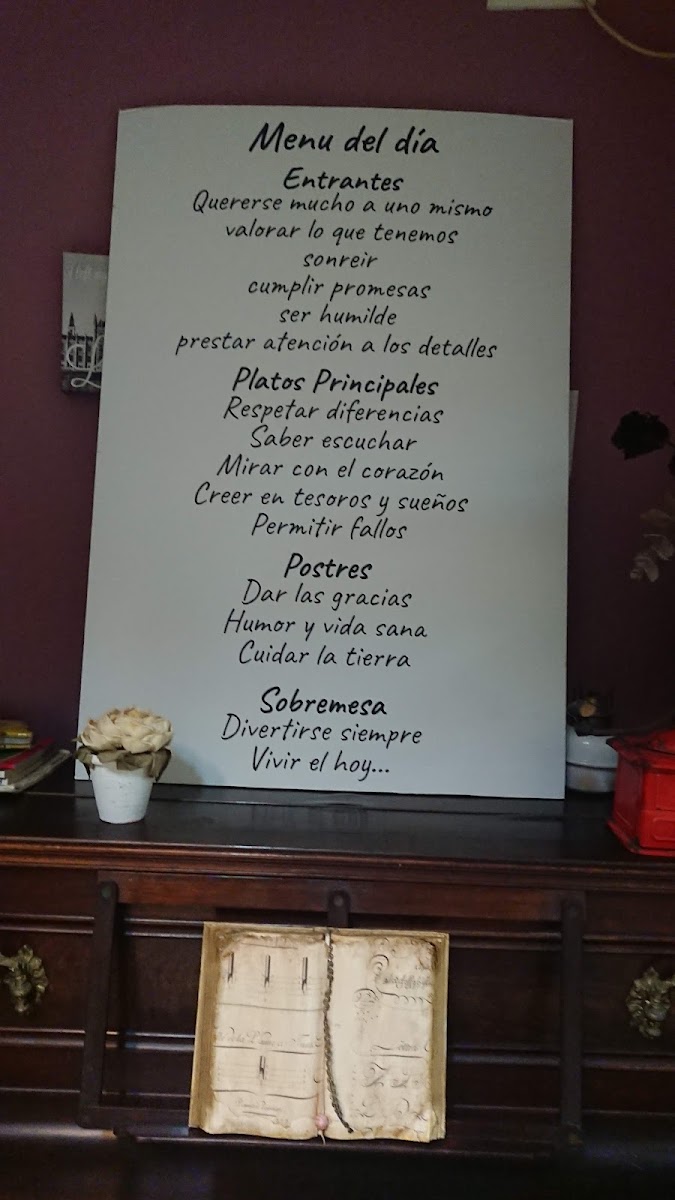 Menu del día
Entrantes
Quererse mucho a uno mismo
valorar lo que tenemos
sonreir
cumplir promesas
ser humilde
prestar atención a los detalles
Platos Principales
Respetar diferencias
Saber escuchar
Mirar con el corazón
Creer en tesoros y sueños
Permitir fallos
Postres
Dar las gracias
Humor y vida sana
Cuidar la tierra
Sobremesa
Divertirse siempre
Vivir el hoy...